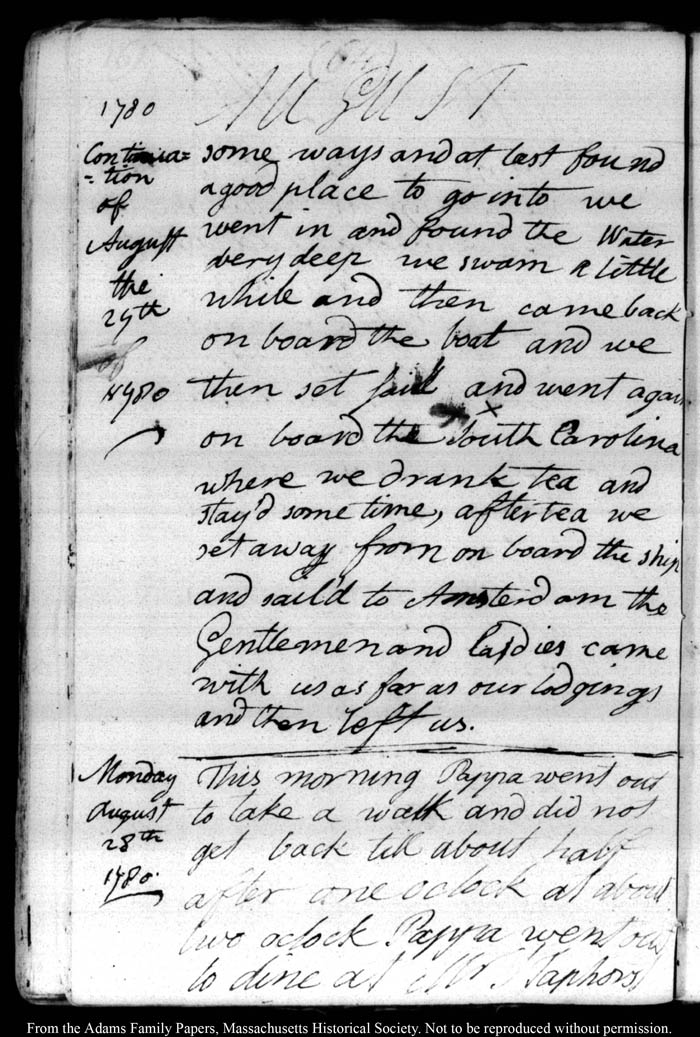 1780
AUGUST
Continua=
=tion
of
August
the
27th
of
1780
some ways and at last found
a good place to go into we
went in and found the Water
very deep we swam a little
while and then came back
on board the boat and we
then set sail and went again
on board the South Carolina
where we drank tea and
stay'd some time, after tea we
set away from on board the ship
and sail'd to Amsterdam the
Gentlemen and ladies came
with us as far as our lodgings
and then left us.
Monday
August
28th
1780.
This morning Pappa went out
to take a walk and did not
get back till about half
after one oclock at about
two oclock Pappa went out
to dine at Mr
From the Adams Family Papers, Massachusetts Historical Society. Not to be reproduced without permission.